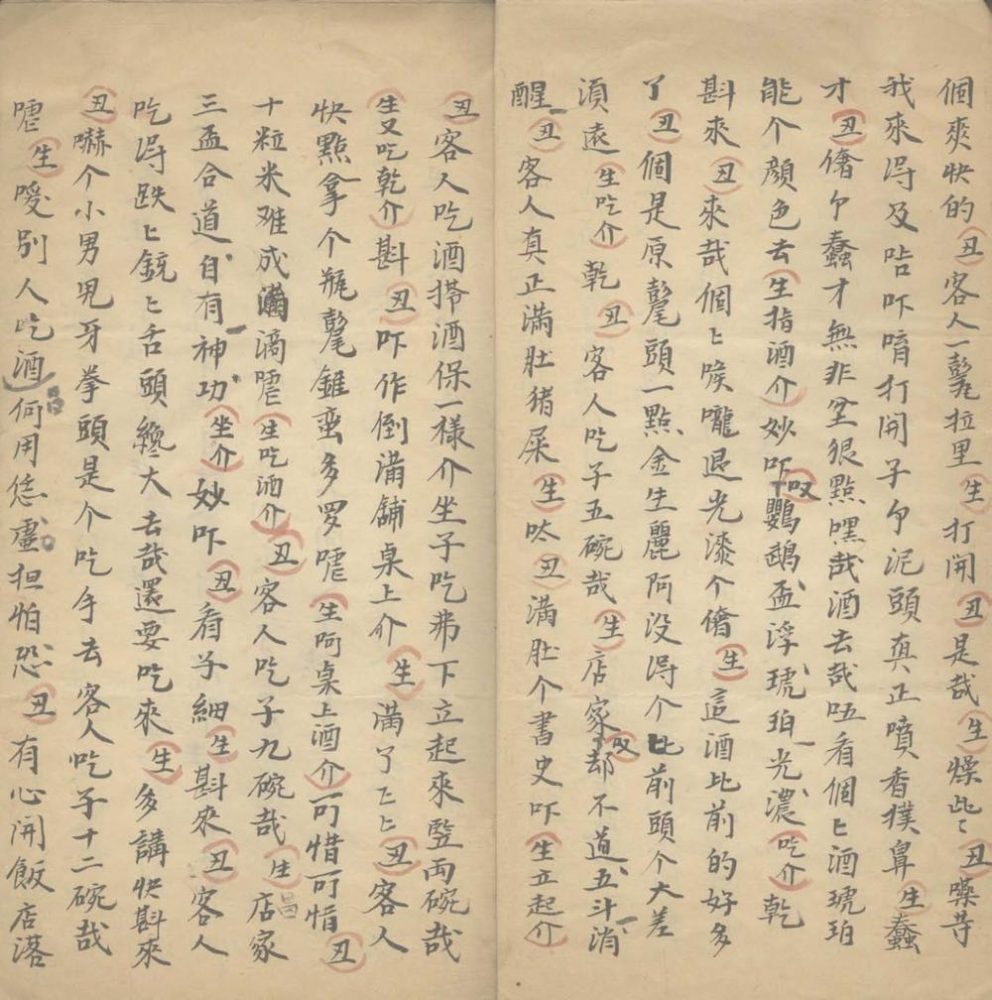 個爽快的丑客人一髦拉里生打開丑是哉生燥些〻丑嗓寺
我來淂及呫吓唷打開子个泥頭真正噴香撲鼻生蠢
才丑僋个蠢才無非坌狠點嘿哉酒去哉吪看個匕酒琥珀
能个顔色去生指酒介妙吓鸚鵡盃浮琥珀光濃吃介乾
斟來丑來哉個匕喉嚨退光漆个僋生這酒比前的好多
了丑個是原髦頭一點金生麗阿没淂个比前頭个大差
湏遠生吃介乾丑客人吃子五碗哉生店家却不道五斗消
醒丑客人真正滿肚猪屎生呔丑滿肚个書史吓生立起介
丑客人吃酒搭酒保一樣介坐子吃弗下立起來竪両碗哉
生又吃乾介斟丑吓作倒滿舗桌上介生滿了匕匕丑客人
快點拿个瓶髦錐蛮多罗嘘生阿桌上酒介可惜可惜丑
十粒米难成滴嘘生吃酒介丑客人吃子九碗哉生店家
三盃合道自有神功坐介妙吓丑看子細生斟來丑客人
吃淂跌匕銃匕舌頭纔大去哉還要吃來生多講快斟來
丑嚇个小男児牙拳頭是个吃手去客人吃子十二碗哉
嘘生噯别人吃酒何用恁盧担怕恐丑有心開飯店落